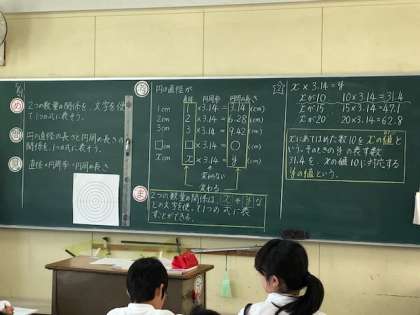 め 2つの数量の関係を、文字を使って1つの式に表そう。
円の直径の長さと円周の長さの関係を、1つの式に表そう。
見 直径×円周率=円周の長さ
円の直径が
直径 円周率 円周の長さ
1cm 1×3.14=3.14(cm)
2cm 2×3.14=6.28(cm)
3cm 3×3.14=9.42(cm)
□cm □×3.14=○(cm)
xcm x×3.14=y(cm)
変わらない
変わる
ま 2つの数量の関係は、xやyなどの文字を使って、1つの式に表すことができる。
x×3.14=y
xが10 10×3.14=31.4
xが15 15×3.14=47.1
xが20 20×3.14=62.8
xにあてはめた数10をxの値と
いう。そのときのyの表す数
31.4を、xの値10に対応する
yの値という。